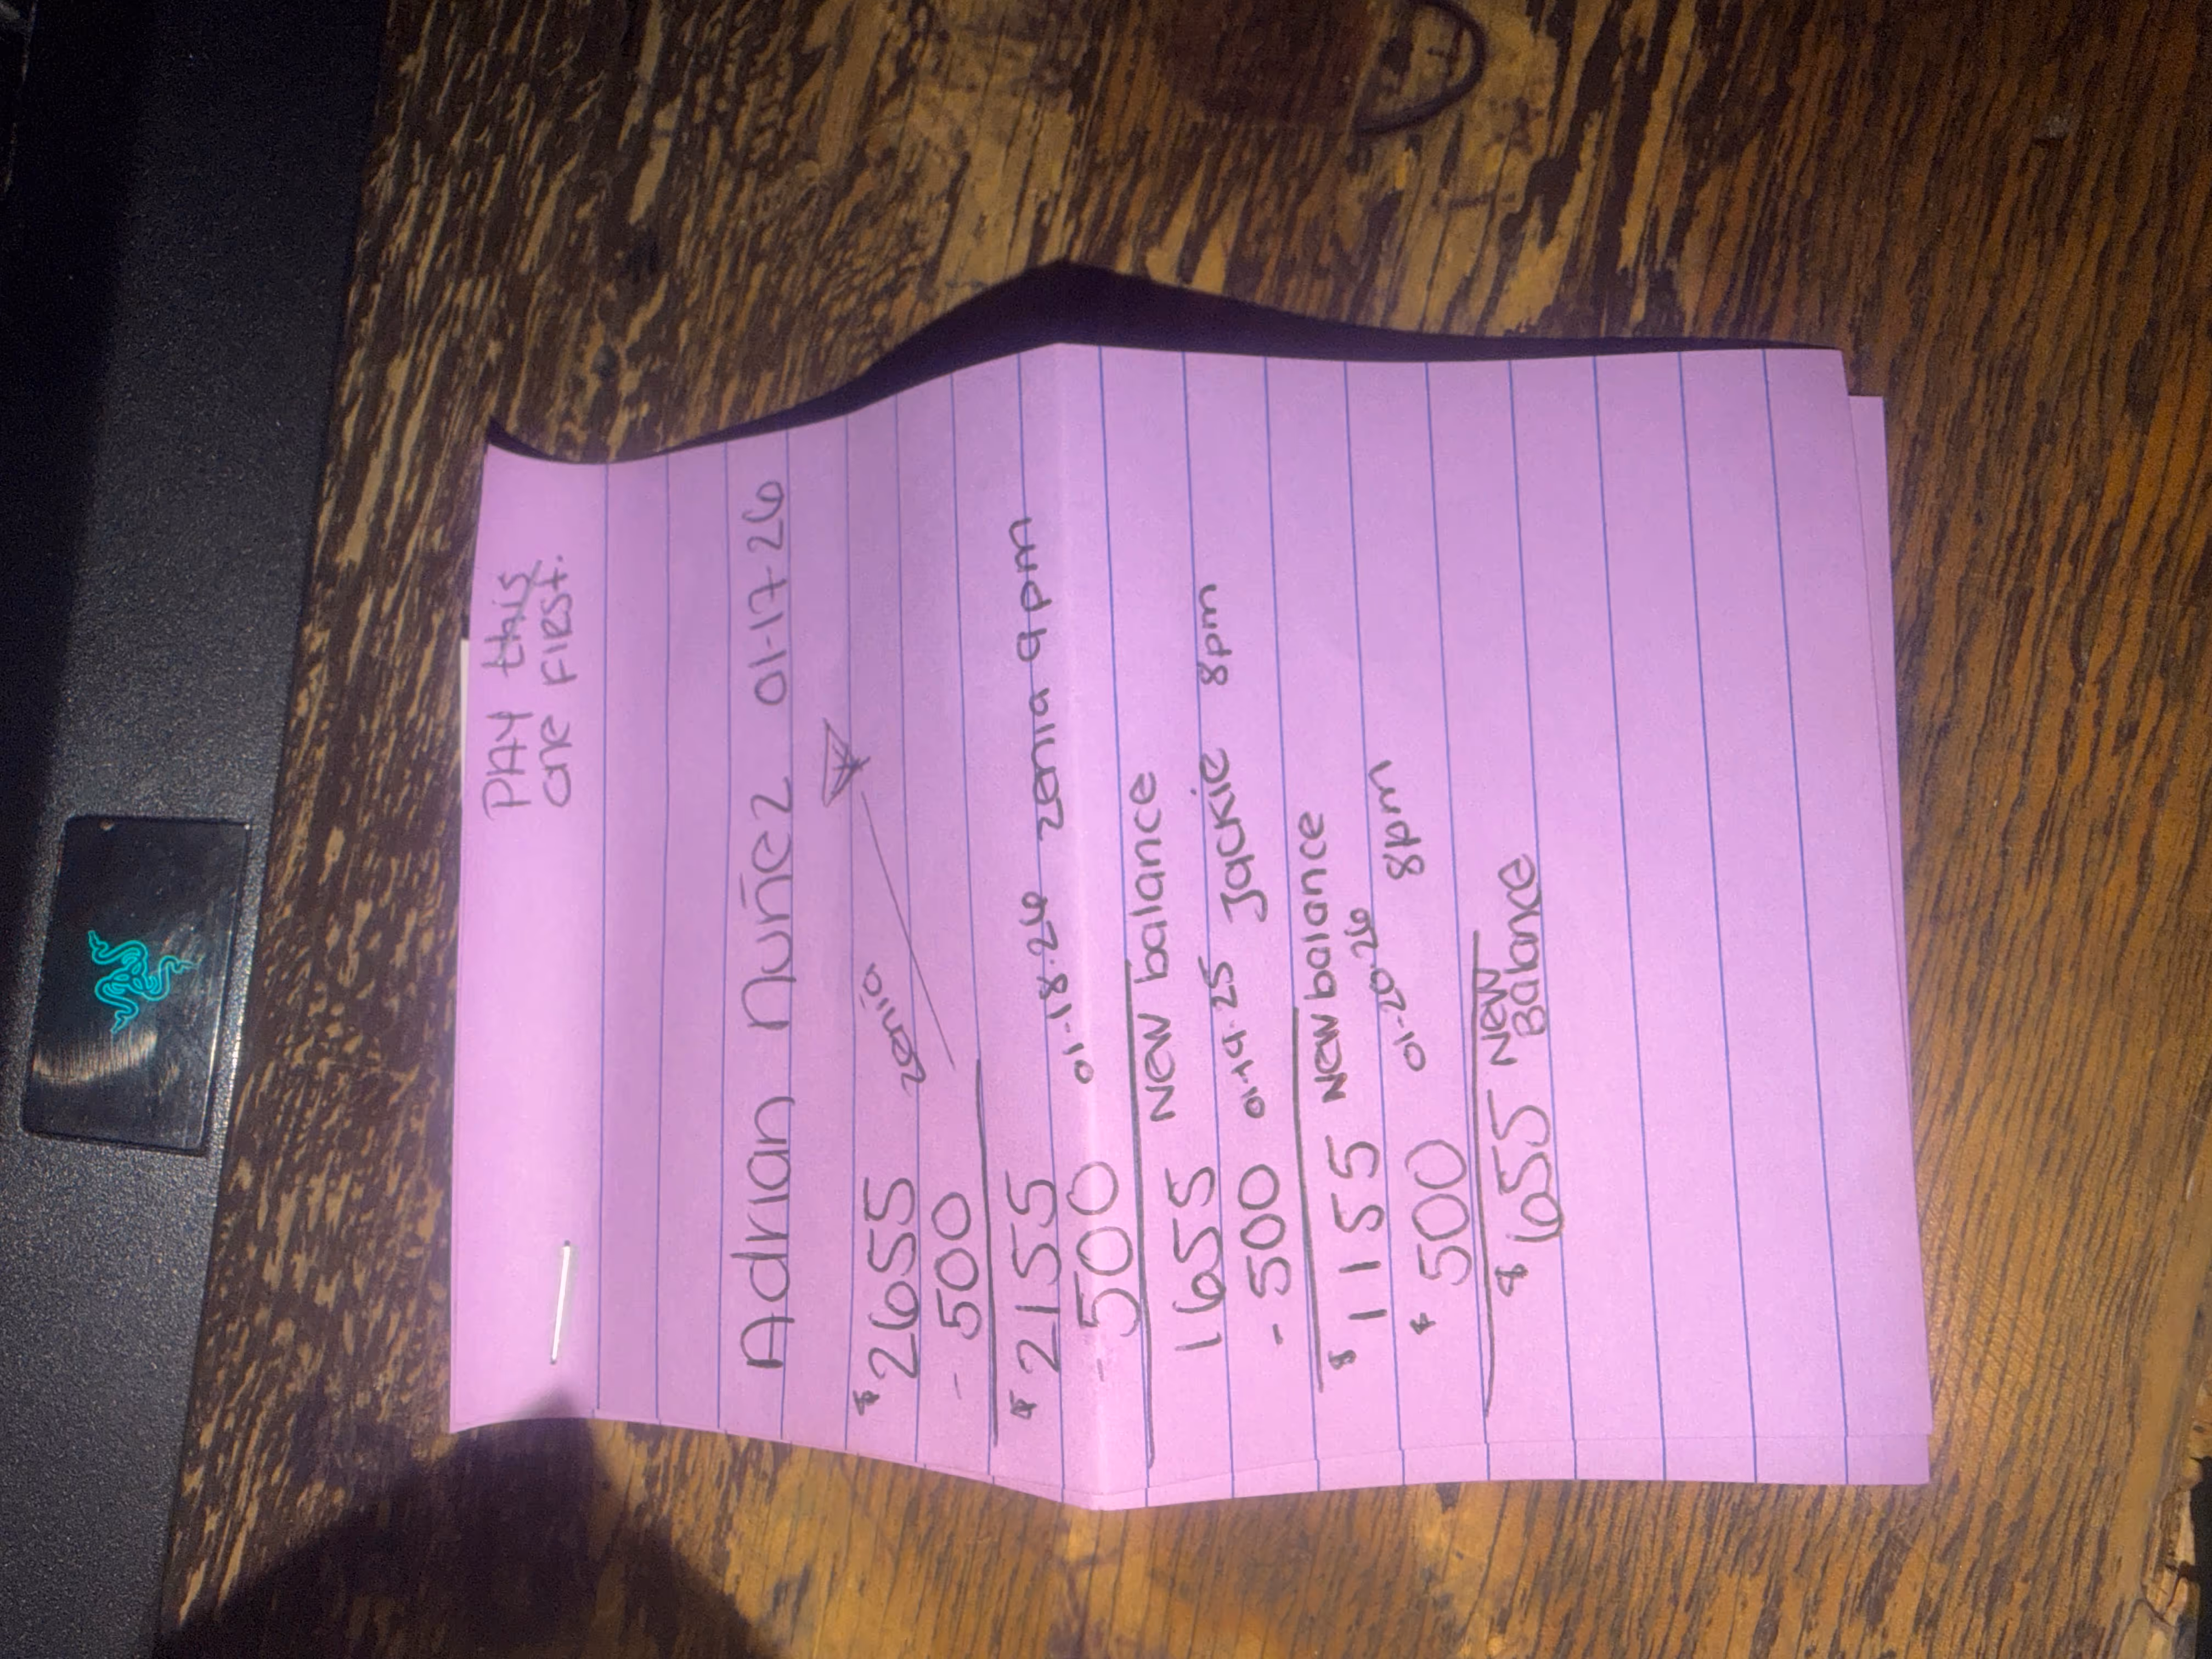 PAY this
one FIRST.
Adrian Nuñez 01-17-26
$2655 zenia
- 500
$2155
- 500 01-18-26 zenia 9pm
1655 New balance
- 500 01-19-25 Jackie 8pm
$1155 New balance
$500 01-20-26 8pm
$655 New
Balance